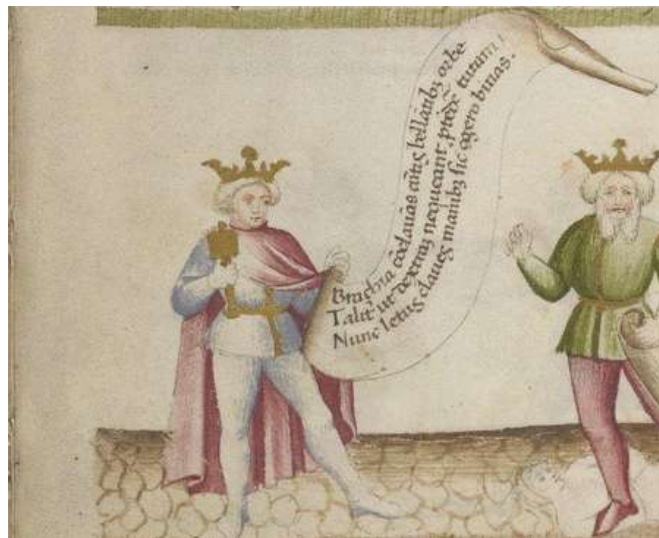 Brachia co͞clauas cu͞tis bella͞tib; orbe
Talit' ut dextra͞ nequeant p͞tede͞ tutum!
Nunc letus claues manib; sic gero binas.